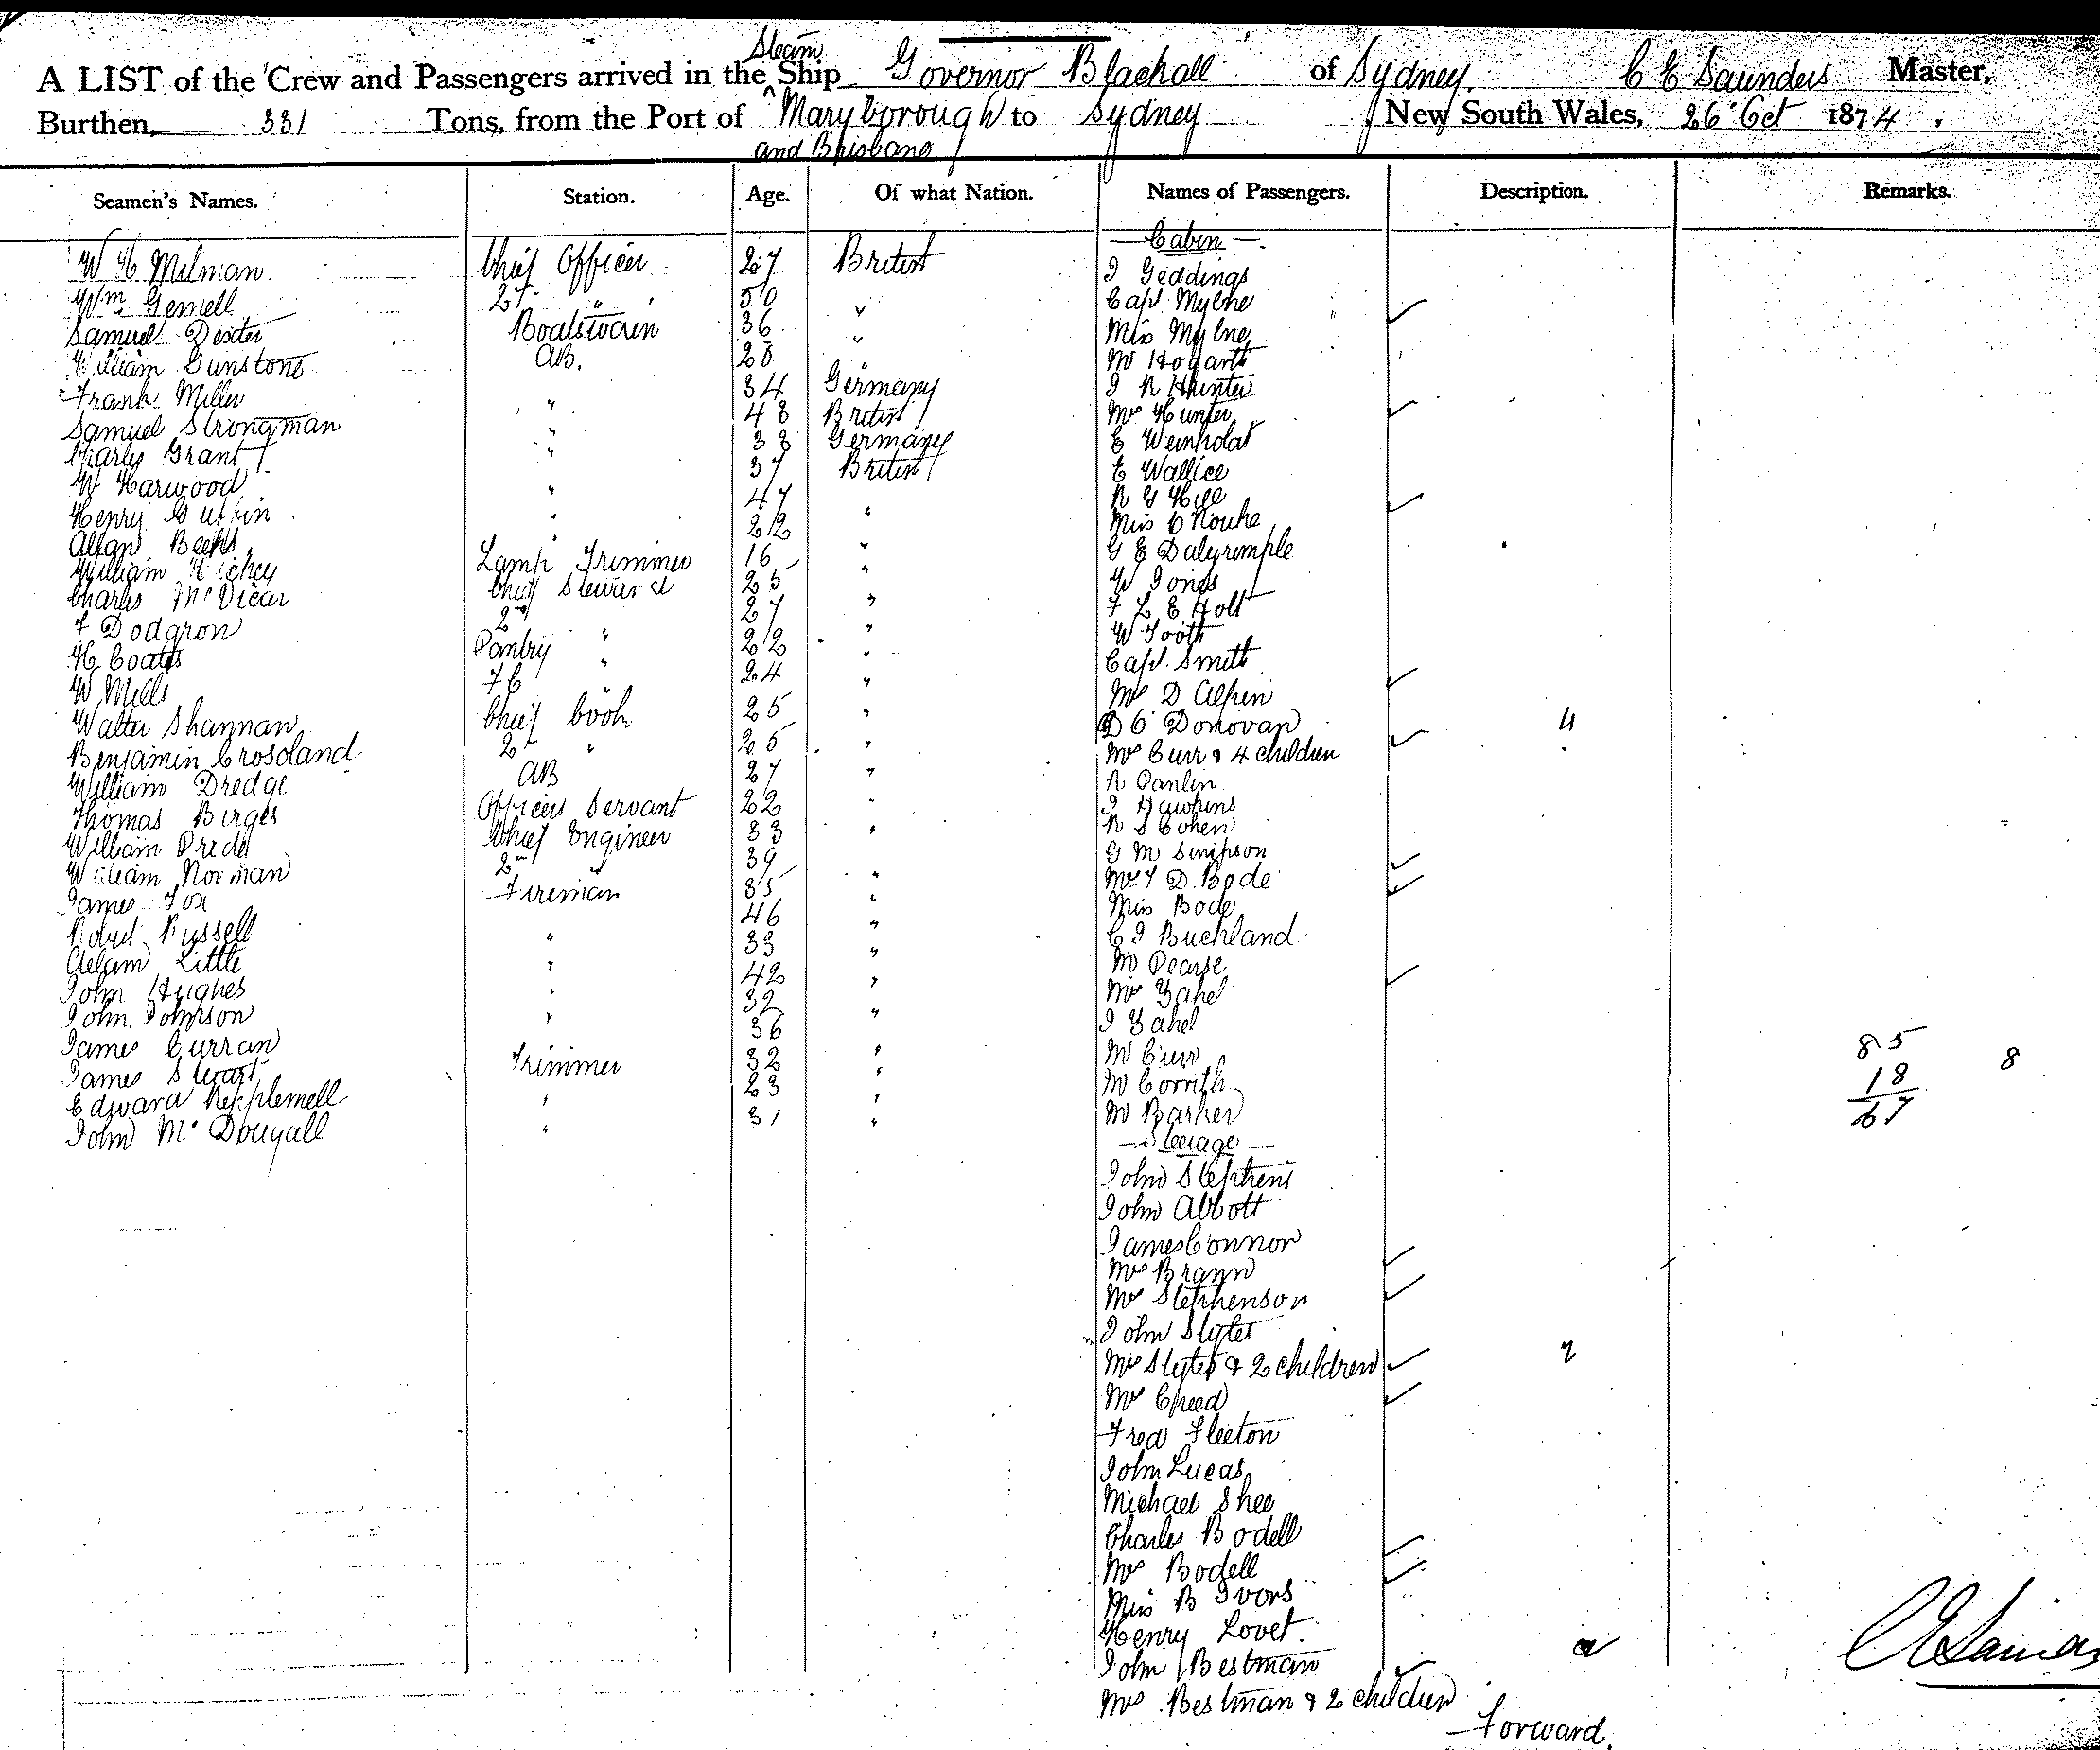 Steam
A LIST of the Crew and Passengers arrived in the Ship Governor Blackall of Sydney. C E Saunders Master,
Burthen, 331 Tons, from the Port of Maryborough to Sydney New South Wales, 26 Oct 1874.
and Brisbane
Seamen's Names. Station. Age. Of what Nation. Names of Passengers. Description. Remarks.
W H Milman Chief Officer 27 British
Wm Gemell 2d " 50 "
Samuel Dexter Boatswain 36 "
William Gunstone AB. 28
Frank Miller " 34 Germany
Samuel Strongman " 48 British
Charly Grant " 38 Germany
W Harwood 37 British
Henry " 47 "
Allan " 22 "
William Hickey Lamp Trimmer 16 "
Charles McVicar Chief Steward 25 "
F Dodgron 2d " 27 "
H Coates Pantry " 22 "
W Mills FC " 24 "
Walter Shannan Chief Cook 25 "
Benjamin Crosdand 2d " 25 "
William Dredge AB 27 "
Thomas Birges Officers Servant 22 "
William Pride Chief Engineer 33 "
William Norman 2d " 39 "
James Fox Fireman 35 "
Robert Russell " 46 "
Adam Little " 33 "
John Hughes " 42 "
John Johnson " 32 "
James Curran 36 "
James Trimmer 32 "
Edward " 23 "
John McDougall " 31 "
Cabin
J Geddings
Capt. Mylne
Miss Mylne
Mr Hogarth
J R Hunter
Mrs Hunter
E Weinholdt
E Wallice
R G Hill
Miss O Rouke
G E Dalyrimple
W Jones
F L E Holt
W Tooth
Capt. Smith
Mrs D Alpen
D O Donovan 4
Mrs Curr & 4 children
R Panlin
J Hawkins
R S Cohen
G M Simpson
Mrs D. Bode
Miss Bode
C J Buckland
Mr Pearse
Mrs Zahel
J Zahel
Mr Curr
Mr Corrith
Mr Barker
85
18 8
67
Steerage
John Stephens
John Abbott
James Connor
Mrs Brann
Mrs Stephenson
John Slytes
Mrs Slytes & 2 children 2
Mrs Creed
Fred Fleeton
John Lucas
Michael Shee
Charles Bodell
Mrs Bodell
Miss B Ivors
Henry Lovet.
John Bestman 2
Mrs Bestman & 2 children
Forward.